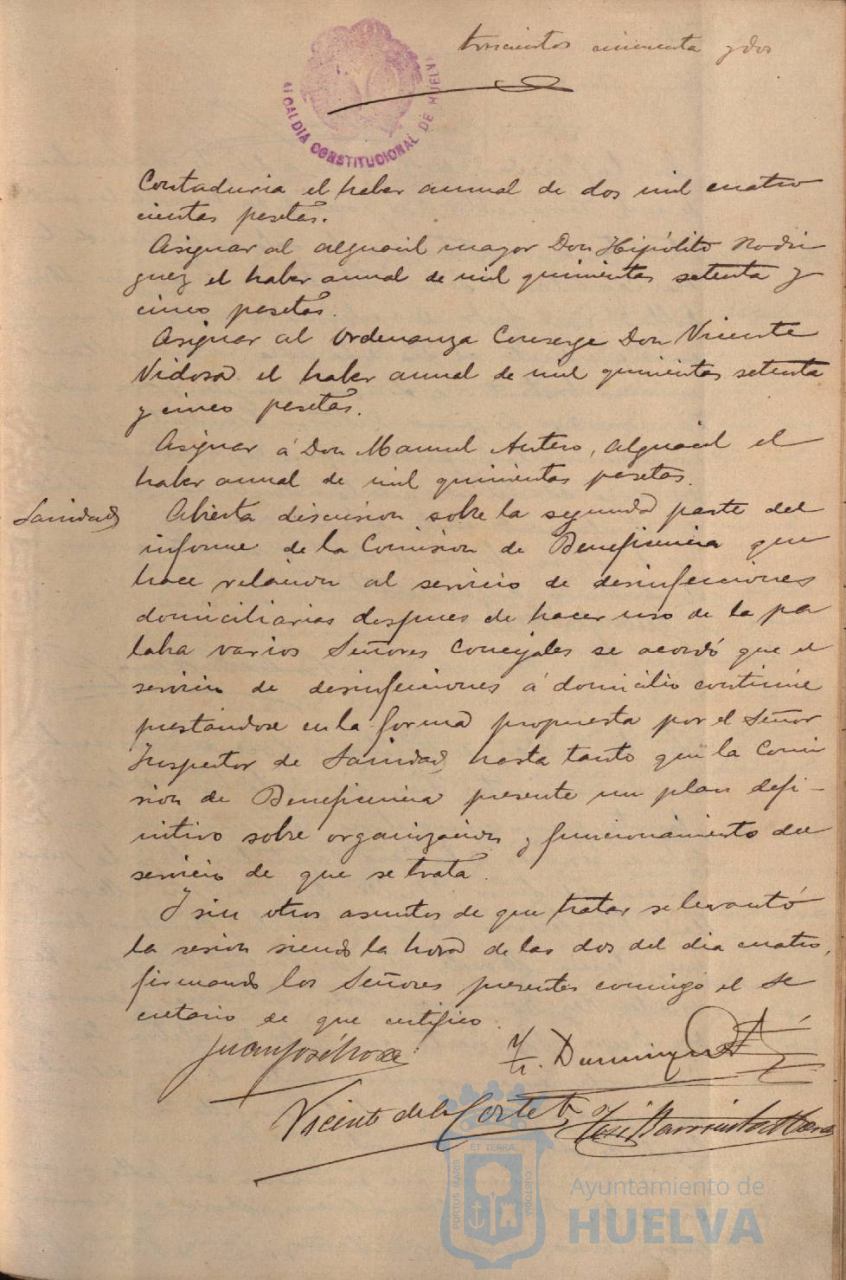 trescientos cincuenta y dos
ALCALDIA CONSTITUCIONAL DE HUELVA
Contaduria el haber annual de dos mil cuatro
cientas pesetas.
Asignar al alguacil mayor Don Hipólito Rodri
guez el haber anual de mil quinientas setenta y
cinco pesetas.
Asignar al Ordenanza Conserge Don Vicente
Vidosa el haber annual de mil quinientas setenta
y cinco pesetas.
Asignar á Don Manuel Antero, alguacil el
haber annual de mil quinientas pesetas.
Sanidad
Abierta discusion sobre la segunda parte del
informe de la Comision de Beneficencia que
hace relacion al servicio de desinfecciones
domiciliarias despues de hacer uso de la pa
labra varios Señores Concejales se acordó que el
servicio de desinfecciones á domicilio continúe
prestándose en la forma propuesta por el Señor
Inspector de Sanidad, hasta tanto que la Comi
sion de Beneficencia presente un plan defi-
nitivo sobre organizacion y funcionamiento del
servicio de que se trata.
Y sin otros asuntos de que tratar se levantó
la sesion siendo la hora de las dos del dia cuatro,
firmando los Señores presentes comigo el Se
cretario de que certifico.
Juan José
Vicente de la Corte
José Barrientos
PORTUS MARIS ET TERRÆ CUSTODIA
Ayuntamiento de
HUELVA